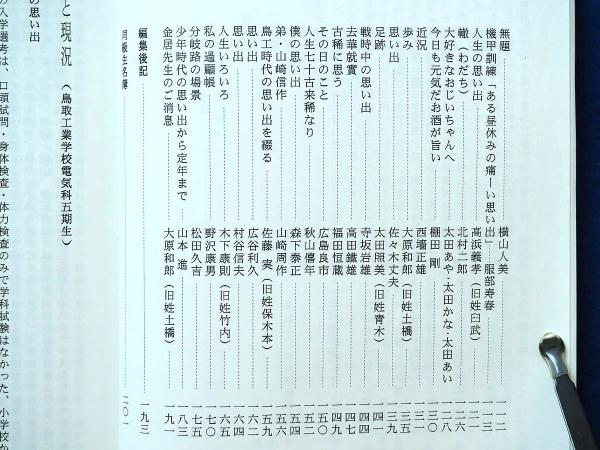 無題 横山人美 一一二
機甲訓練「ある昼休みの痛ーい思い出」 服部寿春 一一三
人生の思い出 高浜義孝（旧姓臼武）
轍（わだち） 北村二郎 一二六
大好きなおじいちゃんへ 太田あや・太田かな・太田あい 一二八
今日も元気だお酒が旨い 棚田 剛 一三〇
近況 西墻正雄 一三一
歩み 大原和郎（旧姓土橋） 一三五
思い出 佐々木丈夫 一三九
足跡 太田照美（旧姓青木） 一四一
戦時中の思い出 寺坂岩雄 一四四
去華就實 高田鐵雄 一四七
古稀に思う 福田恒蔵 一四九
その日のこと 広島良市 一五〇
人生七十古来稀なり 秋山僖年 一五二
僕の思い出 森下泰正 一五四
弟・山崎信作 山崎周作 一五六
鳥工時代の思い出を綴る 佐藤 実（旧姓保木本） 一五九
思い出 広谷利久 一六二
思い出 村谷信夫 一六四
人生いろいろ 木下康則（旧姓竹内） 一六五
私の過顧帳 野沢康男 一七〇
分岐路の場景 松田久吉 一七五
少年時代の思い出から定年まで 山本 進 一八三
金居先生のご消息 大原和郎（旧姓土橋） 一九一
編集後記 一九三
同級生名簿 二〇一
と現況（鳥取工業学校電気科五期生）
の思い出
の入学選考は、口頭試問・身体検査・体力検査のみで学科試験はなかった、小学校か